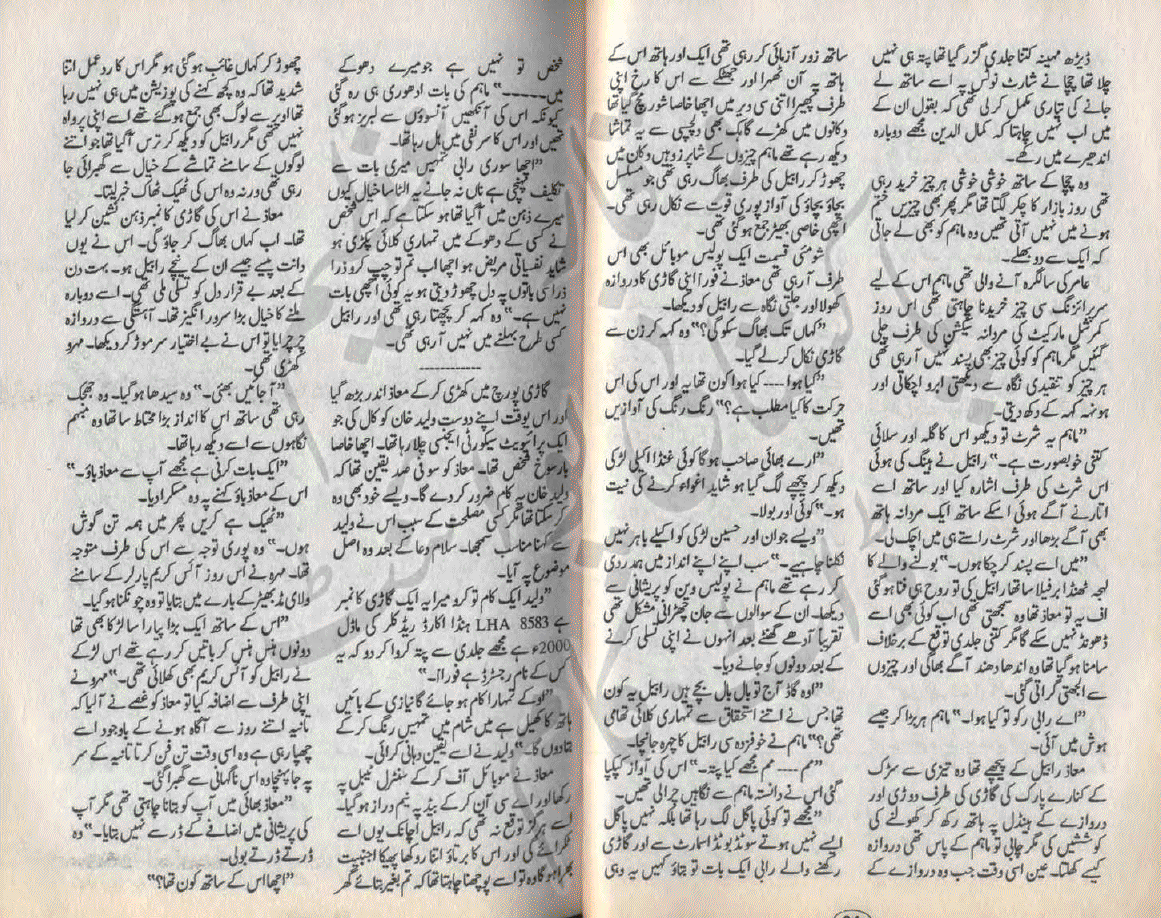 ڈیڑھ مہینہ کتنا جلدی گزر گیا تھا پتہ ہی نہیں
چلا تھا چچا نے شارٹ نوٹس پہ اسے ساتھ لے
جانے کی تیاری مکمل کر لی تھی کہ بقول ان کے
میں اب نہیں چاہتا کہ کمال الدین مجھے دوبارہ
اندھیرے میں رکھے۔
وہ چچا کے ساتھ خوشی خوشی ہر چیز خرید رہی
تھی روز بازار کا چکر لگتا تھا مگر پھر بھی چیزیں ختم
ہونے میں نہیں آتی تھیں وہ ماہم کو بھی لے جاتی
کہ ایک سے دو بھلے۔
عامر کی سالگرہ آنے والی تھی ماہم اس کے لیے
سرپرائزنگ سی چیز خریدنا چاہتی تھی اس روز
کمرشل مارکیٹ کی مردانہ سیکشن کی طرف چلی
گئیں مگر ماہم کو کوئی چیز بھی پسند نہیں آ رہی تھی
ہر چیز کو تنقیدی نگاہ سے دیکھتی ابرو اچکاتی اور
ہونہہ کہہ کے رکھ دیتی۔
”ماہم یہ شرٹ تو دیکھو اس کا گلہ اور سلائی
کتنی خوبصورت ہے۔“ رابیل نے ہینگ کی ہوئی
اس شرٹ کی طرف اشارہ کیا اور ساتھ اسے
اتارنے آگے ہوئی اسکے ساتھ ایک مردانہ ہاتھ
بھی آگے بڑھا اور شرٹ راستے ہی میں اچک لی۔
”میں اسے پسند کر چکا ہوں۔“ بولنے والے کا
لہجہ ٹھنڈا برفیلا سا تھا رابیل کی تو روح ہی فنا ہو گئی
اف یہ تو معاذ تھا وہ سمجھتی تھی اب کوئی بھی اسے
ڈھونڈ نہیں سکے گا مگر کتنی جلدی توقع کے برخلاف
سامنا ہو گیا تھا وہ اندھا دھند آگے بھاگی اور چیزوں
سے الجھتی گراتی گئی۔
”اے رابی رکو تو کیا ہوا۔“ ماہم ہڑبڑا کر جیسے
ہوش میں آئی۔
معاذ رابیل کے پیچھے تھا وہ تیزی سے سڑک
کے کنارے پارک کی گاڑی کی طرف دوڑی اور
دروازے کے ہینڈل پہ ہاتھ رکھ کر کھولنے کی
کوششیں کی مگر چابی تو ماہم کے پاس تھی دروازہ
کیسے کھلتا۔ عین اسی وقت جب وہ دروازے کے
ساتھ زور آزمائی کر رہی تھی ایک اور ہاتھ اس کے
ہاتھ پہ آن ٹھہرا اور جھٹکے سے اس کا رخ اپنی
طرف پھیرا اتنی سی دیر میں اچھا خاصا شور مچ گیا تھا
دکانوں میں کھڑے گاہک بھی دلچسپی سے یہ تماشا
دیکھ رہے تھے ماہم چیزوں کے شاپرز وہیں دکان میں
چھوڑ کر رابیل کی طرف بھاگ رہی تھی جو مسلسل
بچاؤ بچاؤ کی آواز پوری قوت سے نکال رہی تھی۔
اچھی خاصی بھیڑ جمع ہو گئی تھی۔
شومئی قسمت ایک پولیس موبائل بھی اس
طرف آ رہی تھی معاذ نے فوراً اپنی گاڑی کا دروازہ
کھولا اور جلتی نگاہ سے رابیل کو دیکھا۔
”کہاں تک بھاگ سکو گی؟“ وہ کہہ کر زن سے
گاڑی نکال کر لے گیا۔
”کیا ہوا ---- کیا ہوا کون تھا یہ اور اس کی اس
حرکت کا کیا مطلب ہے؟“ رنگ رنگ کی آوازیں
تھیں۔
”ارے بھائی صاحب ہو گا کوئی غنڈا اکیلی لڑکی
دیکھ کر پیچھے لگ گیا ہو شاید اغواء کرنے کی نیت
ہو۔“ کوئی اور بولا۔
”ویسے جوان اور حسین لڑکی کو اکیلے باہر نہیں
نکلنا چاہیے۔“ سب اپنے اپنے انداز میں ہمدردی
کر رہے تھے ماہم نے پولیس وین کو پریشانی سے
دیکھا۔ ان کے سوالوں سے جان چھڑانی مشکل تھی
تقریباً آدھے گھنٹے بعد انہوں نے اپنی تسلی کرنے
کے بعد دونوں کو جانے دیا۔
”اوہ گاڈ آج تو بال بال بچے ہیں رابیل یہ کون
تھا جس نے اتنے استحقاق سے تمہاری کلائی تھامی
تھی؟“ ماہم نے خوفزدہ سی رابیل کا چہرہ جانچا۔
”مم ---- مم مجھے کیا پتہ۔“ اس کی آواز کپکپا
گئی اس نے دانستہ ماہم سے نگاہیں چرالی تھیں۔
”مجھے تو کوئی پاگل لگ رہا تھا بلکہ نہیں پاگل
ایسے نہیں ہوتے سوٹڈ بوٹڈ اسمارٹ سے اور گاڑی
رکھنے والے رابی ایک بات تو بتاؤ کہیں یہ وہی
شخص تو نہیں ہے جو میرے دھوکے
میں-----“ ماہم کی بات ادھوری ہی رہ گئی
کیونکہ اس کی آنکھیں آنسوؤں سے لبریز ہو گئی
تھیں اور اس کا سر نفی میں ہل رہا تھا۔
”اچھا سوری رابی تمہیں میری بات سے
تکلیف پہنچی ہے ناں نہ جانے یہ الٹا سا خیال کیوں
میرے ذہن میں آ گیا تھا ہو سکتا ہے کہ اس شخص
نے کسی کے دھوکے میں تمہاری کلائی پکڑی ہو
شاید نفسیاتی مریض ہو اچھا اب تم تو چپ کرو ذرا
ذرا سی باتوں پہ دل چھوڑ دیتی ہو یہ کوئی اچھی بات
نہیں ہے۔“ وہ کہہ کر پچھتا رہی تھی اور رابیل
کسی طرح بہلنے میں نہیں آ رہی تھی۔
------------
گاڑی پورچ میں کھڑی کر کے معاذ اندر بڑھ گیا
اور اس یوقت اپنے دوست ولید خان کو کال کی جو
ایک پرائیویٹ سیکورٹی ایجنسی چلا رہا تھا۔ اچھا خاصا
بارسوخ شخص تھا۔ معاذ کو سو فی صد یقین تھا کہ
ولید خان یہ کام ضرور کر دے گا۔ ویسے خود بھی وہ
کر سکتا تھا مگر کسی مصلحت کے سبب اس نے ولید
سے کہنا مناسب سمجھا۔ سلام دعا کے بعد وہ اصل
موضوع پہ آیا۔
”ولید ایک کام تو کرو میرا یہ ایک گاڑی کا نمبر
ہے LHA 8583 ہنڈا اکارڈ ریڈ کلر کی ماڈل
2000ء ہے مجھے جلدی سے پتہ کروا کر دو کہ یہ
کس کے نام رجسٹرڈ ہے فوراً۔“
”اوکے تمہارا کام ہو جائے گا نیازی کے بائیں
ہاتھ کا کھیل ہے میں شام میں تمہیں رنگ کر کے
بتادوں گا۔“ ولید نے اسے یقین دہانی کرائی۔
معاذ نے موبائل آف کر کے سنٹرل ٹیبل پہ
رکھا اور اے سی آن کر کے بیڈ پہ نیم دراز ہو گیا۔
اسے ہرگز توقع نہ تھی کہ رابیل اچانک یوں اسے
ٹکرائے گی اور اس کا برتاؤ اتنا روکھا پھیکا اجنبیت
بھرا ہو گا وہ تو اسے پوچھنا چاہتا تھا کہ تم بغیر بتائے گھر
چھوڑ کر کہاں غائب ہو گئی ہو مگر اس کا رد عمل اتنا
شدید تھا کہ وہ کچھ کہنے کی پوزیشن میں ہی نہیں رہا
تھا اوپر سے لوگ بھی جمع ہو گئے تھے اسے اپنی پرواہ
نہیں تھی مگر رابیل کو دیکھ کر ترس آ گیا تھا جو اتنے
لوگوں کے سامنے تماشے کے خیال سے گھبرائی جا
رہی تھی ورنہ وہ اس کی ٹھیک ٹھاک خبر لیتا۔
معاذ نے اس کی گاڑی کا نمبر ذہن نشین کر لیا
تھا۔ اب کہاں بھاگ کر جاؤ گی۔ اس نے یوں
دانت پیسے جیسے ان کے نیچے رابیل ہو۔ بہت دن
کے بعد بے قرار دل کو تسلی ملی تھی۔ اسے دوبارہ
ملنے کا خیال بڑا سرور انگیز تھا۔ آہستگی سے دروازہ
چرچرایا تو اس نے بے اختیار سر موڑ کر دیکھا۔ مہرہ
کھڑی تھی۔
”آ جائیں بھئی۔“ وہ سیدھا ہو گیا۔ وہ جھجک
رہی تھی ساتھ اس کا انداز بڑا محتاط سا تھا وہ مبہم
نگاہوں سے اسے دیکھ رہا تھا۔
”ایک بات کرنی ہے مجھے آپ سے معاذ باؤ۔“
اس کے معاذ باؤ کہنے پہ وہ مسکرا دیا۔
”ٹھیک ہے کریں پھر میں ہمہ تن گوش
ہوں۔“ وہ پوری توجہ سے اس کی طرف متوجہ
تھا۔ مہرہ نے اس روز آئس کریم پارلر کے سامنے
والی مڈ بھیڑ کے بارے میں بتایا تو وہ چونکنا ہو گیا۔
”اس کے ساتھ ایک بڑا پیارا سا لڑکا بھی تھا
دونوں ہنس ہنس کر باتیں کر رہے تھے اس لڑکے
نے رابیل کو آئس کریم بھی کھلائی تھی۔“ مہرو نے
اپنی طرف سے اضافہ کیا تو معاذ کو غصے نے آلیا کہ
ثانیہ اتنے روز سے آگاہ ہونے کے باوجود اسے
چھپا رہی ہے وہ اسی وقت تن فن کرتا ثانیہ کے سر
پہ جا پہنچا وہ اس ناگہانی سے گھبرا گئی۔
”معاذ بھائی میں آپ کو بتانا چاہتی تھی مگر آپ
کی پریشانی میں اضافے کے ڈر سے نہیں بتایا۔“ وہ
ڈرتے ڈرتے بولی۔
”اچھا اس کے ساتھ کون تھا؟“